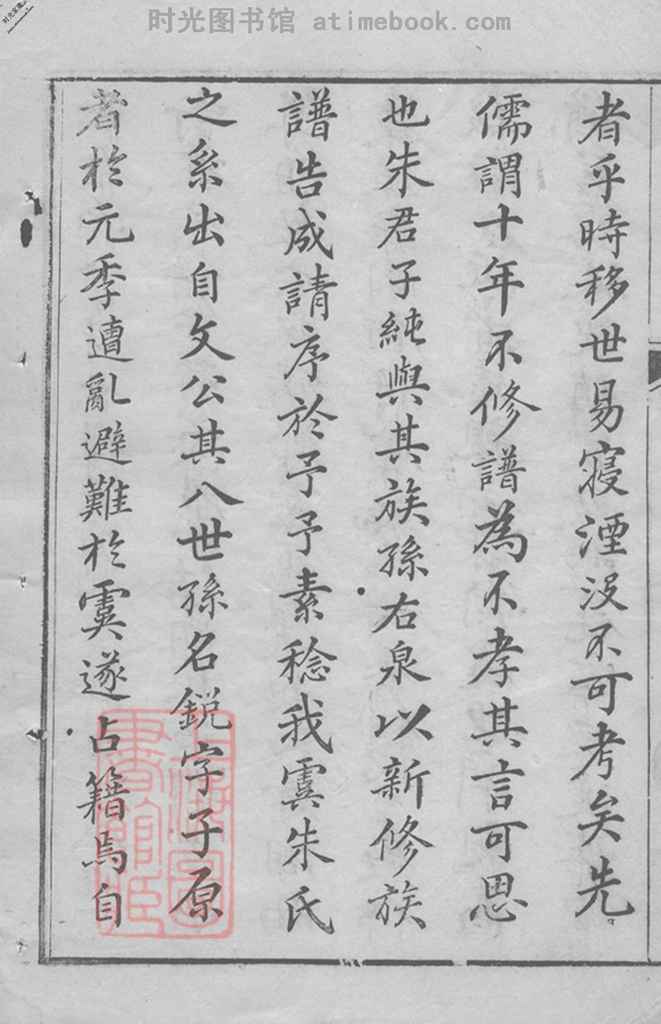 时光图书馆 atimebook.com
者乎時移世易寖湮没不可考矣先
儒謂十年不修譜為不孝其言可思
也朱君子純與其族孫右泉以新修族
譜告成請序於予予素稔我虞朱氏
之系出自文公其八世孫名銳字子原
者於元季遭亂避難於虞遂占籍焉自